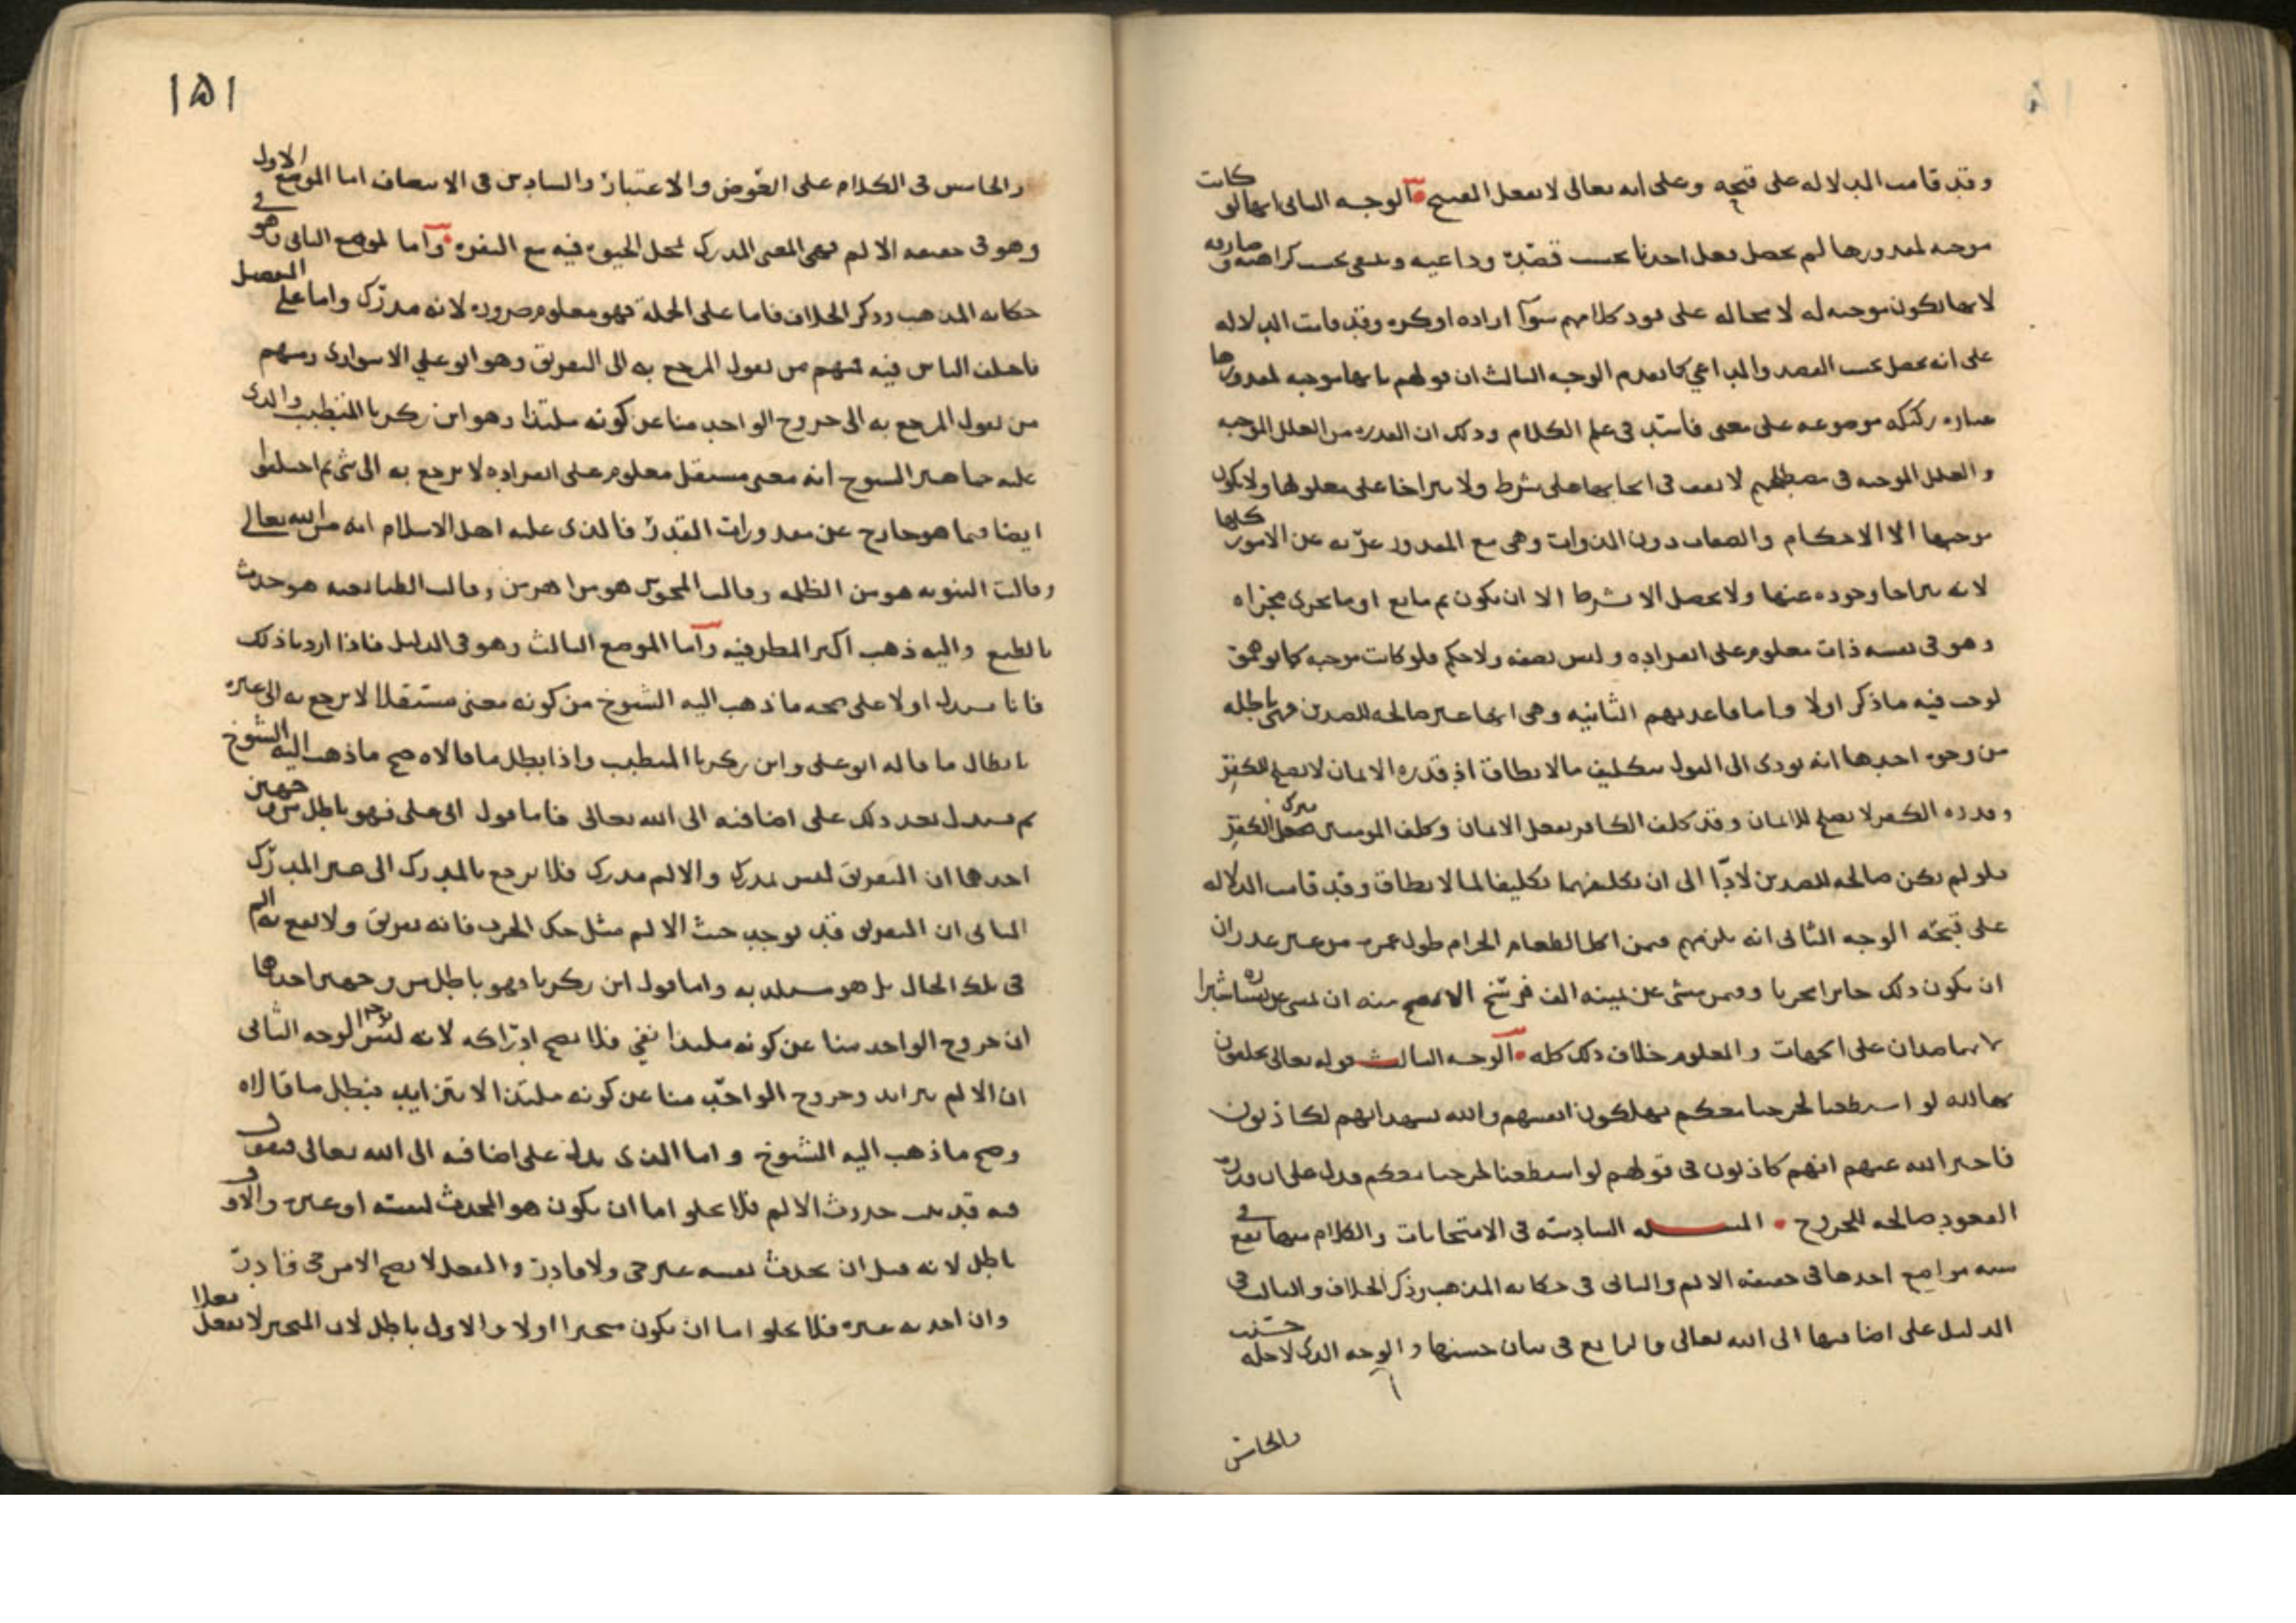 وقد قامت الدلاله على قبحه وعلى انه تعالى لا يفعل القبيح الوجه الثانى انها لو كانت
موجبه لمقدورها لم يحصل فعل احدنا بحسب قصده وداعيه وينتفى بحسب كراهته وصارفه
لانها تكون موجبه له لا محاله على مود كلامهم سوآ اراده او كره وقد قامت الدلاله
على انه يحصل بحسب القصد والداعي كما تقدم الوجه الثالث ان قولهم بانها موجبه لمقدورها
عباره ركيكه موضوعه على معنى فاسد فى علم الكلام وذلك ان القدره من العلل الموجبه
والعلل الموجبه فى مصطلحهم لا تقف فى ايجابها على شرط ولا يتراخا على معلولها ولا يكون
موجبها الا الاحكام والصفات دون الذوات وهى مع المقدور عريه عن الامور كلها
لانه يتراخا وجوده عنها ولا يحصل الا بشرط الا ان يكون ثم مانع او ما يجرى مجراه
وهو فى نفسه ذات معلوم على انفراده وليس بصفه ولا حكم فلو كانت موجبه كما توهمو
لوجب فيه ما ذكر اولا واما قاعدتهم الثانيه وهى انها غير صالحه للضدين فهى باطله
من وجوه احدها انه يودى الى القول بتكليف ما لا يطاق اذ قدره الايمان لا تصلح للكفر
وقدره الكفر لا تصلح للايمان وقد كلف الكافر بفعل الايمان وكلف المومنين بترك الكفر
فلو لم تكن صالحه للضدين لادّا الى ان تكليفهما تكليفا لما لا يطاق وقد قامت الدلاله
على قبحه الوجه الثانى انه يلزمهم فيمن اكل الطعام الحرام طول عمره من غير عذر ان
ان يكون ذلك جايزا مجريا وفيمن مشى عن يمينه الف فرسخ الا يصح منه ان يمشى عن يساره شبرا
لانهما ضدان على الجهات والمعلوم خلاف ذلك كله الوجه الثالث قوله تعالى يحلفون
بالله لو استطعنا لخرجنا معكم يهلكون انفسهم والله يشهد انهم لكاذبون
فاخبر الله عنهم انهم كاذبون فى قولهم لو استطعنا لخرجنا معكم فدل على ان قدره
القعود صالحه للخروج المسـله السادسه فى الامتحانات والكلام منها يقع فى
سته مواضع احدها فى حقيقه الالم والثانى فى حكايه المذهب وذكر الخلاف والثالث فى
الدليل على اضافتها الى الله تعالى والرابع فى بيان حسنها والوجه الذى لاجله حسنت
والخامس
١٥١
والخامس فى الكلام على العوض والاعتبار والسادس فى الانصاف اما الموضع الاول
وهو فى حقيقه الالم فهى المعنى المدرك بمحل الحيوه فيه مع النفره واما الموضع الثانى وهو فى
حكايه المذهب وذكر الخلاف فاما على الجمله فهو معلوم ضروره لانه مدرك واما على التفصيل
فاختلف الناس فيه فمنهم من يقول المرجع به الى التفريق وهو ابو علي الاسوارى ومنهم
من يقول المرجع به الى خروج الواحد منا عن كونه ملتذا وهو ابن زكريا المتطبب والذى
عليه جماهير الشيوخ انه معنى مستقل معلوم على انفراده لا يرجع به الى شى ثم اختلفوا
ايضا فيما هو خارج عن مقدورات القدر فالذى عليه اهل الاسلام انه من الله تعالى
وقالت الثنويه هو من الظلمه وقالت المجوس هو من اهرمن وقالت الطبائعيه هو حدث
بالطبع واليه ذهب اكثر المطرفيه واما الموضع الثالث وهو فى الدليل فاذا اردنا ذلك
فانا نستدل اولا على صحه ما ذهب اليه الشيوخ من كونه معنى مستقلا لا يرجع به الى غيره
بابطال ما قاله ابو على وابن زكريا المتطبب واذا بطل ما قالاه صح ما ذهب اليه الشيوخ
ثم نستدل بعد ذلك على اضافته الى الله تعالى فاما قول ابى على فهو باطل من وجهين
احدهما ان التفريق ليس بمدرك والالم مدرك فلا يرجع بالمدرك الى غير المدرك
الثانى ان التفريق قد يوجد حيث لا الم مثل حك الجرب فانه تفريق ولا يقع به الم
فى تلك الحال بل هو مستلذ به واما قول ابن زكريا فهو باطل من وجهين احدهما
ان خروج الواحد منا عن كونه ملتذا نفي فلا يصح ادراكه لانه ليس الوجه الثانى
ان الالم يتزايد وخروج الواحد منا عن كونه ملتذا لا يتزايد فبطل ما قالاه
وصح ما ذهب اليه الشيوخ واما الذى يدل على اضافته الى الله تعالى فنقول
فيه قد ثبت حدوث الالم فلا يخلو اما ان يكون هو المحدث لنفسه او غيره والاول
باطل لانه قبل ان يحدث نفسه غير حى ولا قادر والفعل لا يصح الا من حى قادر
وان احدثه غيره فلا يخلو اما ان يكون متحيزا اولا والاول باطل لان المتحيز لا يفعل فعلا